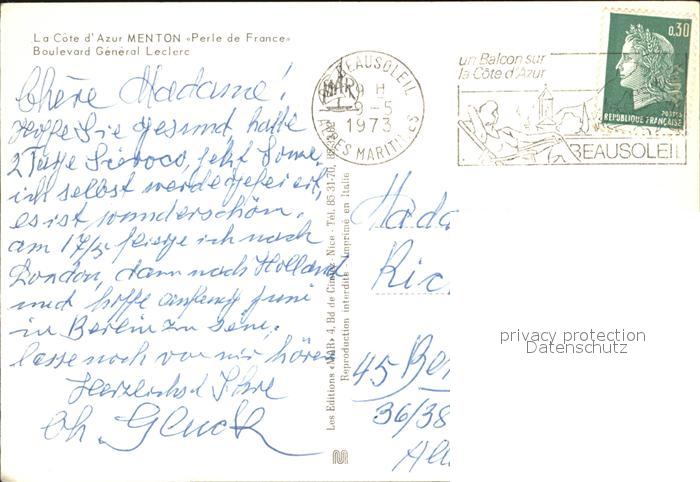 La Côte d'Azur MENTON «Perle de France»
Boulevard Général Leclerc
Chère Madame!
Hoffe Sie gesund, hatte
2 Tage Siroco, jetzt Sonne,
ich selbst werde gefeiert,
es ist wunderschön.
am 17/5 fliege ich nach
London, dann nach Holland
und hoffe anfang Juni
in Berlin zu sein,
lasse noch von mir hören
Herzlichst Ihre
Ch. Gluck
Les Editions «MAR» 4, Bd de Cimiez Nice - Tél. 85-31-70
Reproduction interdite - Imprimé en Italie
BEAUSOLEIL
9 H
9-5
1973
ALPES MARITIMES
un Balcon sur
la Côte d'Azur
BEAUSOLEIL
0,30
POSTES
REPUBLIQUE FRANÇAISE
Mada
Ric
45 Ber
36/38
privacy protection
Datenschutz